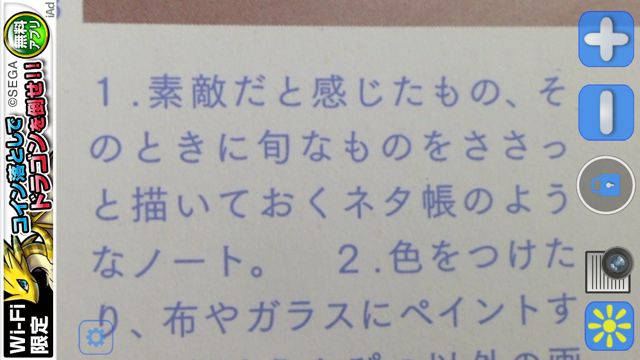 １.素敵だと感じたもの、そ
のときに旬なものをささっ
と描いておくネタ帳のよう
なノート。　２.色をつけた
り、布やガラスにペイントす
iAd
無料
アプリ
©SEGA
コイン落としで
ドラゴンを倒せ!!
Wi-Fi
限定